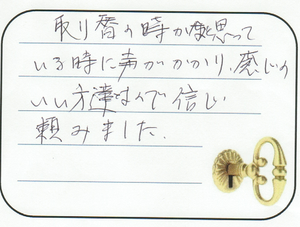 取り替え時か思って
いる時に声がかかり、感じの
いい方達なんで信じ
頼みました。